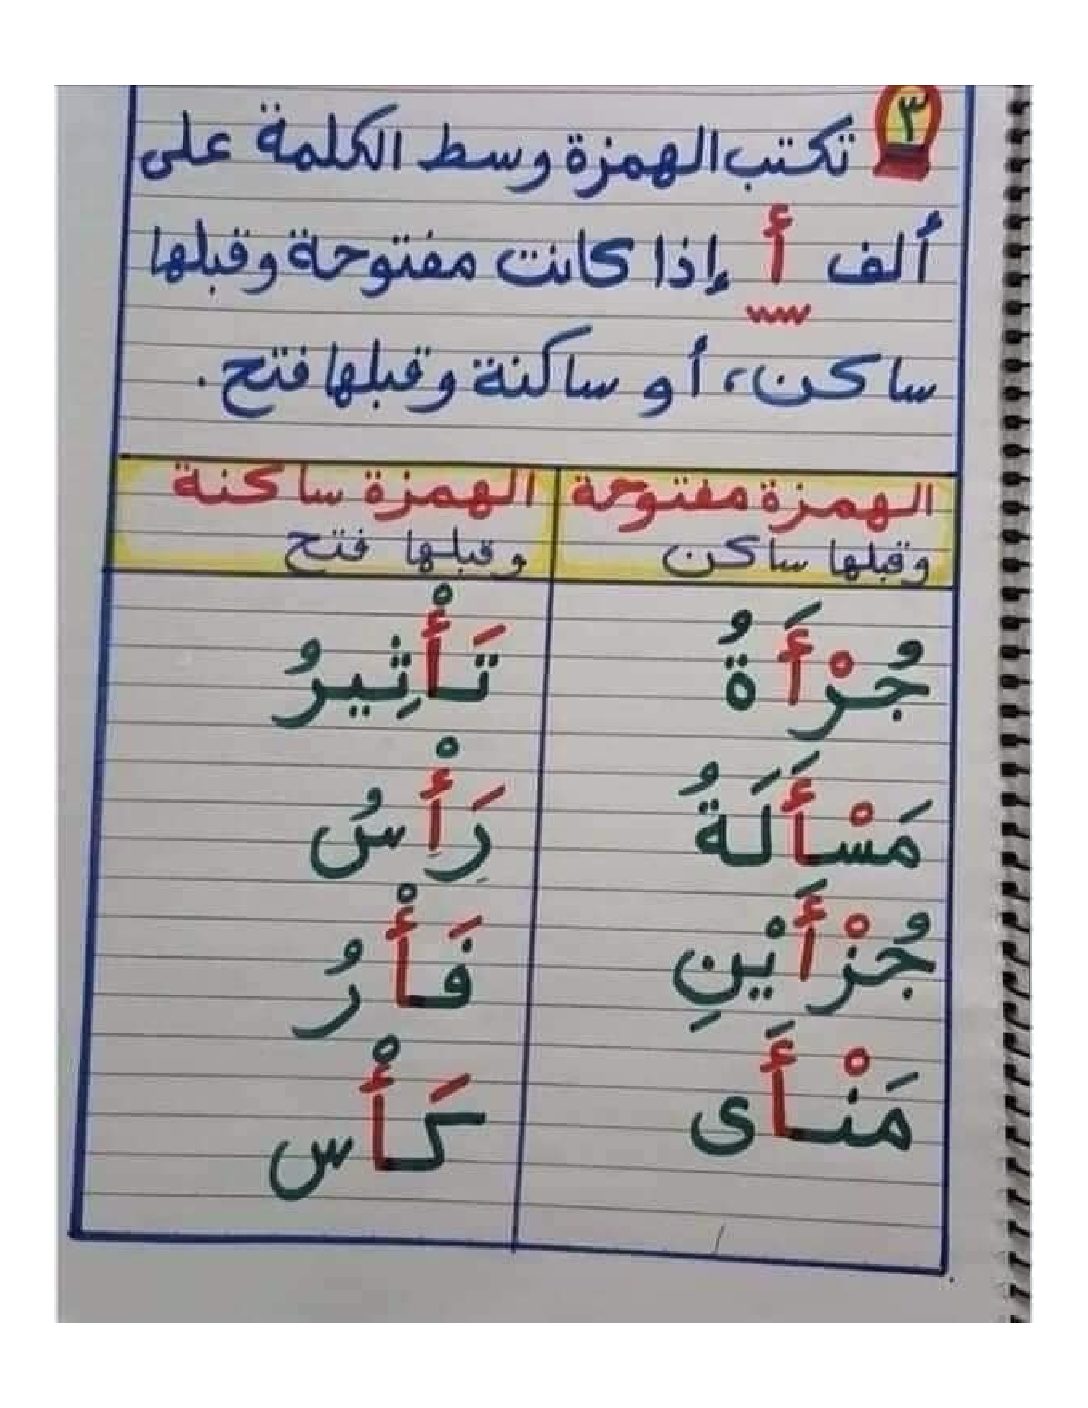 ٣ تكتب الهمزة وسط الكلمة على
ألف أ إذا كانت مفتوحة وقبلها
ساكن، أو ساكنة وقبلها فتح.
الهمزة مفتوحة الهمزة ساكنة
وقبلها ساكن وقبلها فتح
جُرْأَةُ تَأْثِيرُ
مَسْأَلَةُ رَأْسُ
جُزْأَيْنِ فَأْرُ
مَنْأَى كَأْس